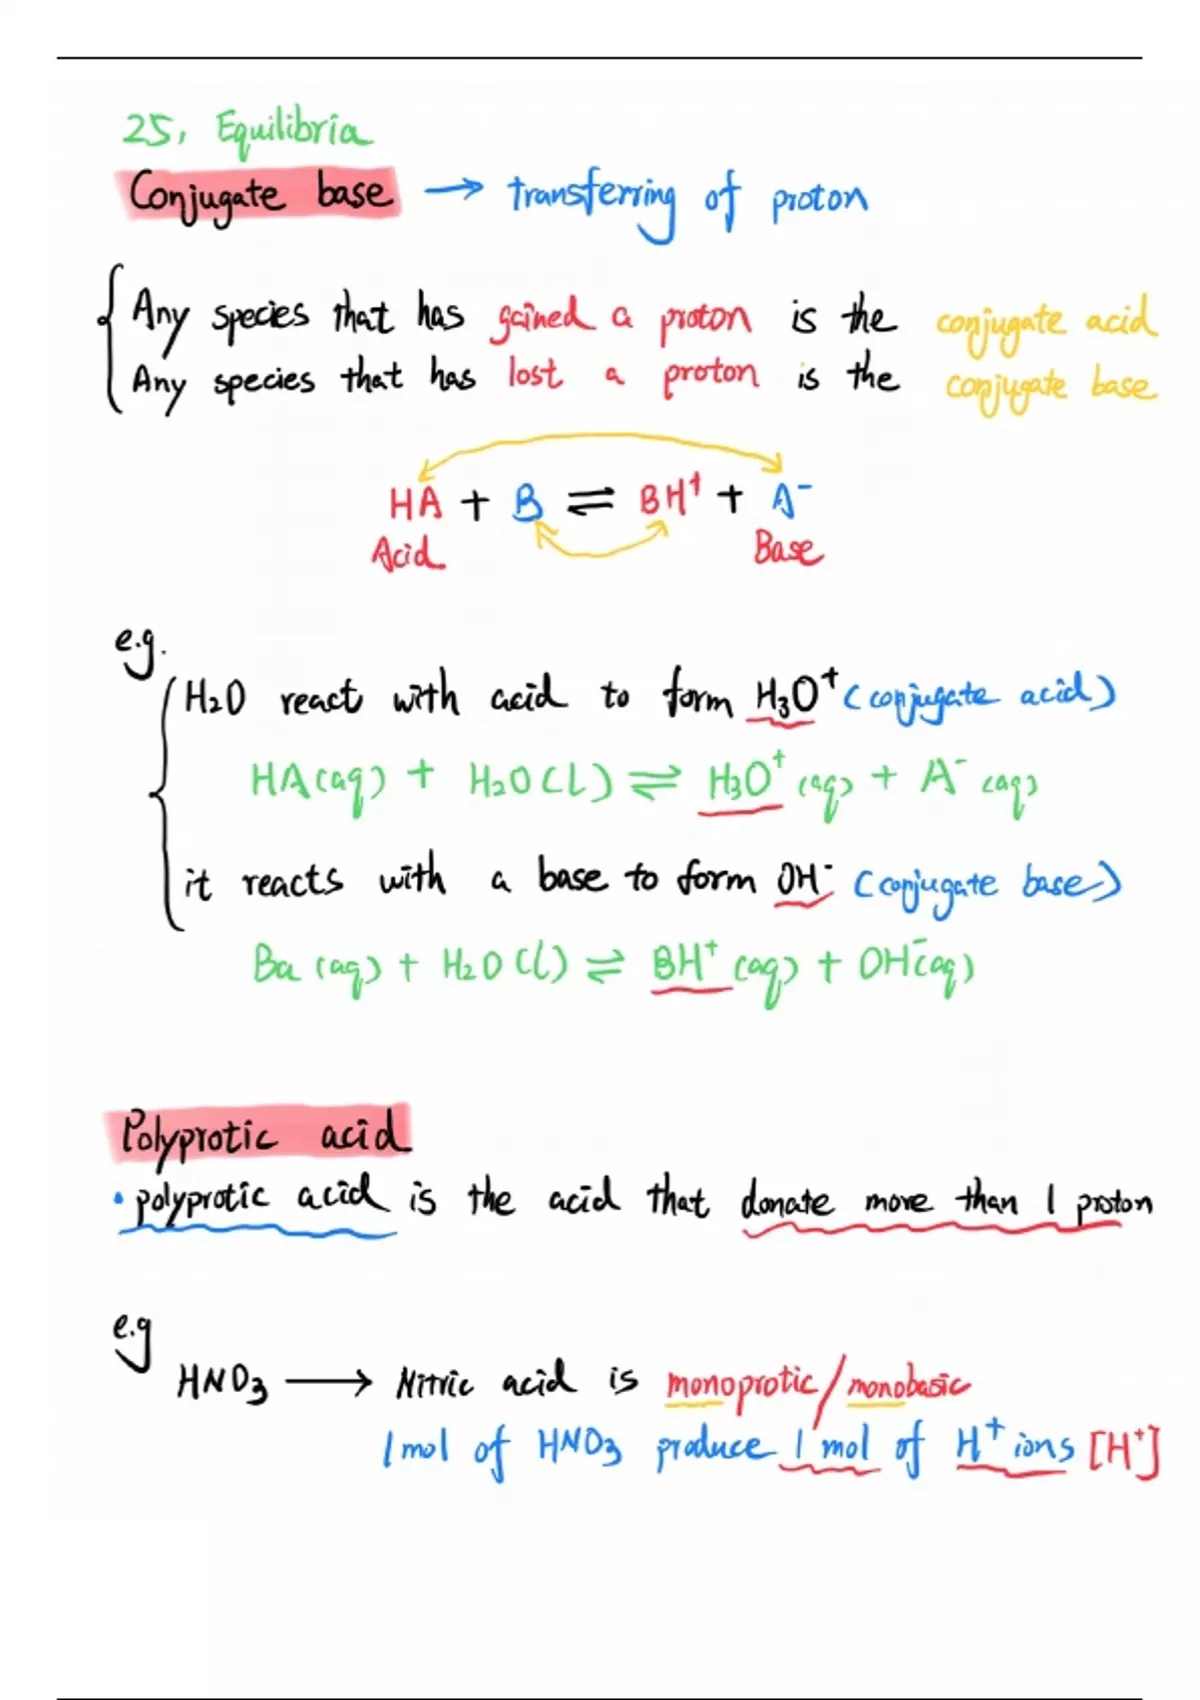 25, Equilibria
Conjugate base → transferring of proton
Any species that has gained a proton is the conjugate acid
Any species that has lost a proton is the conjugate base
HA + B ⇌ BH⁺ + A⁻
Acid Base
e.g.
H₂O react with acid to form H₃O⁺ (conjugate acid)
HA(aq) + H₂O(l) ⇌ H₃O⁺(aq) + A⁻(aq)
it reacts with a base to form OH⁻ (conjugate base)
Ba(aq) + H₂O(l) ⇌ BH⁺(aq) + OH⁻(aq)
Polyprotic acid
• polyprotic acid is the acid that donate more than 1 proton
e.g
HNO₃ → Nitric acid is monoprotic/monobasic
1 mol of HNO₃ produce 1 mol of H⁺ ions [H⁺]